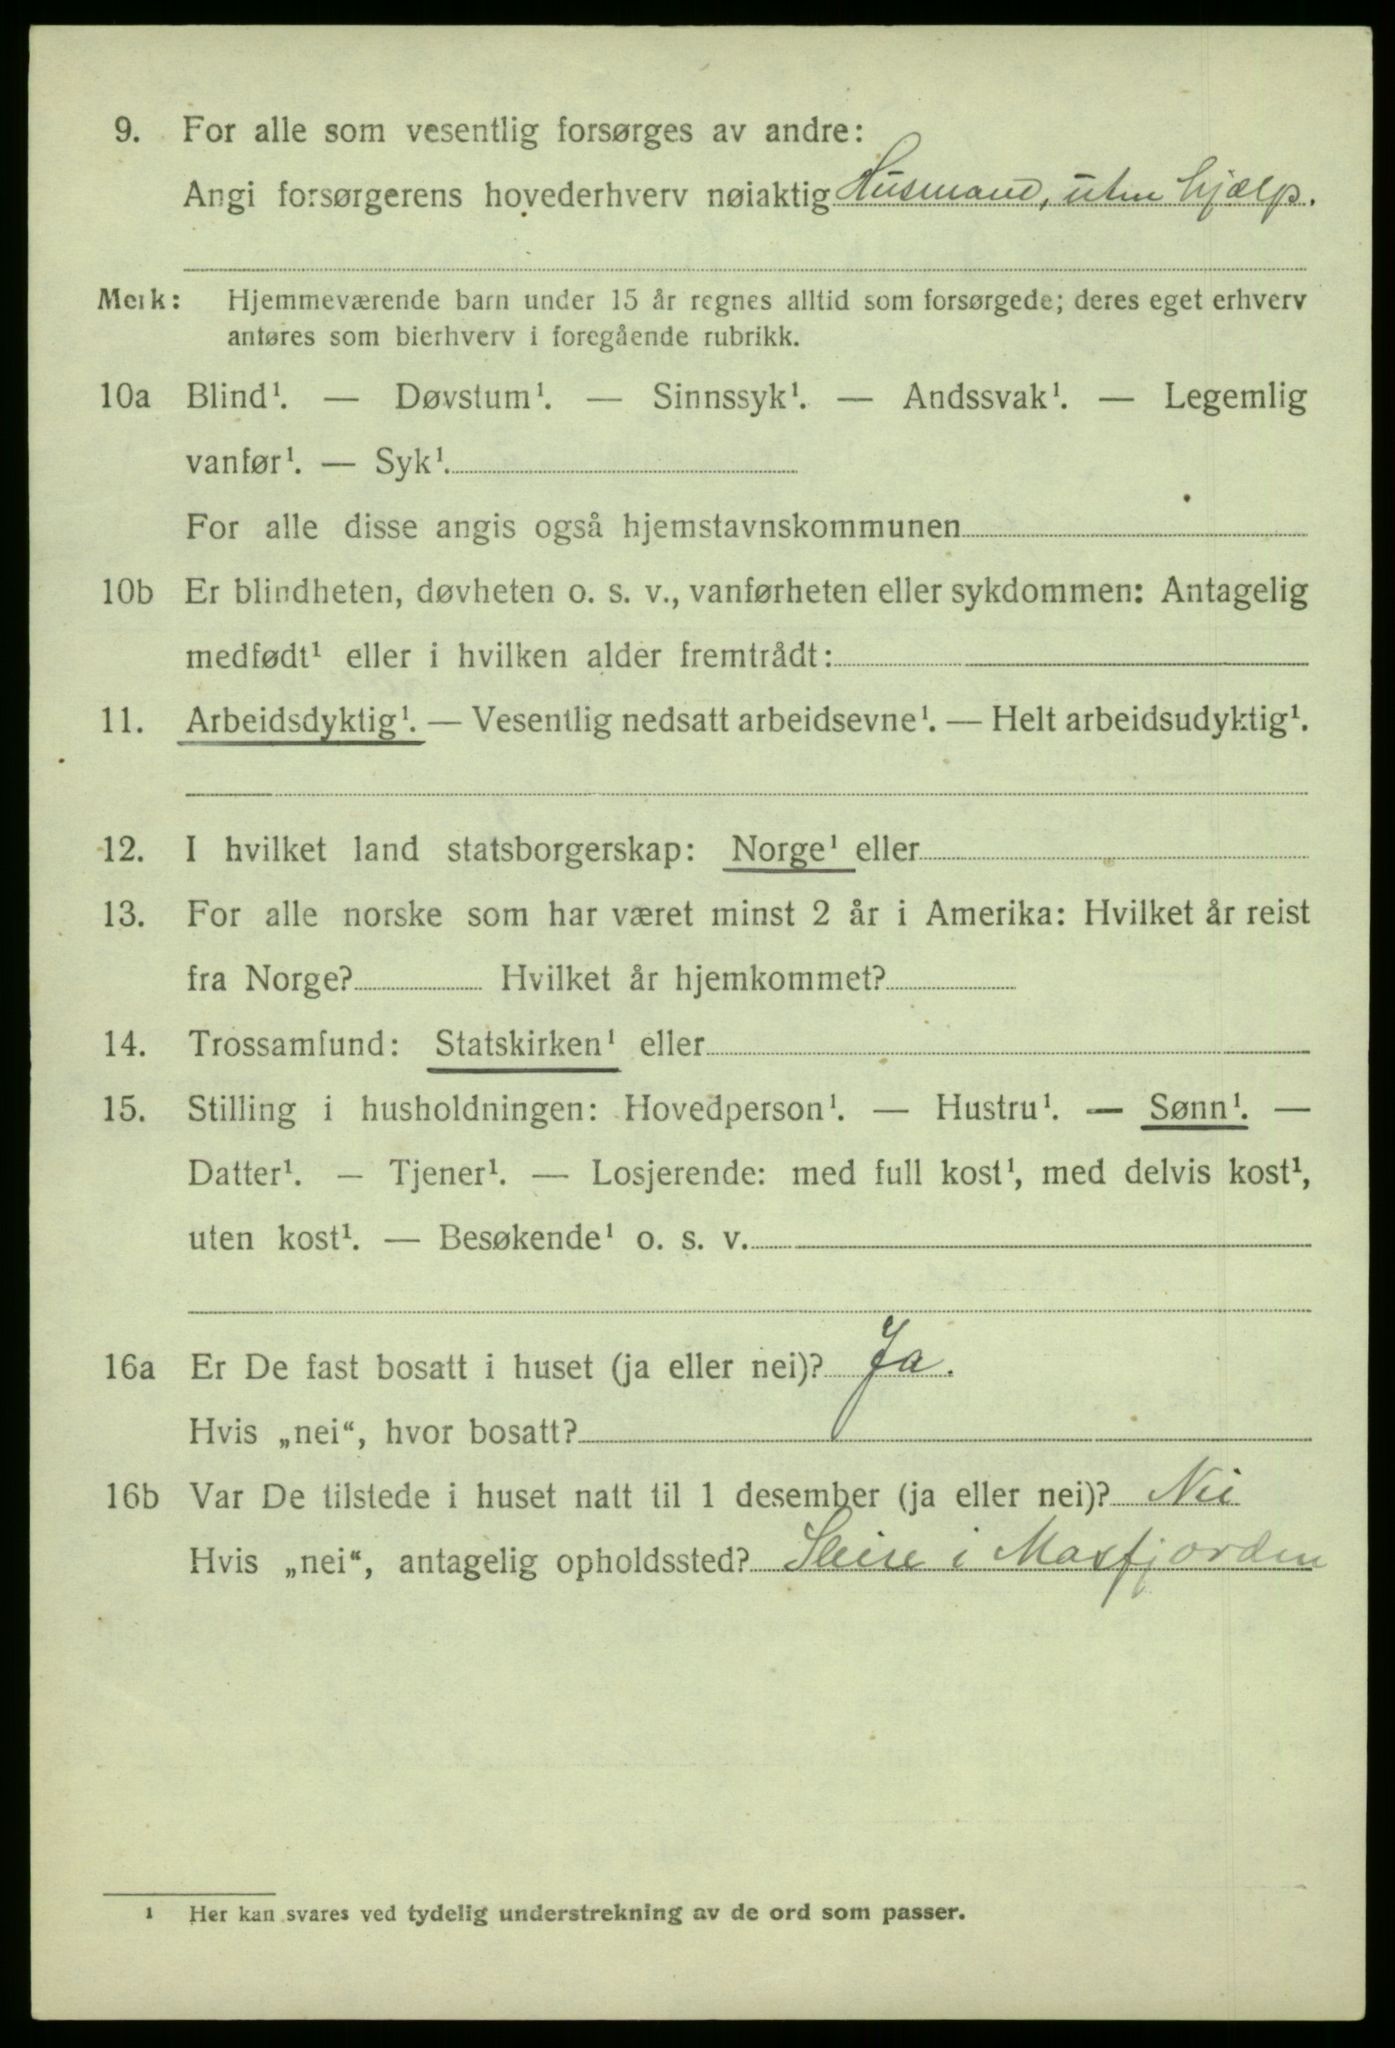 9. For alle som vesentlig forsørges av andre:
Angi forsørgerens hovederhverv nøiaktig Husmand, uten hjælp.
Merk: Hjemmeværende barn under 15 år regnes alltid som forsørgede; deres eget erhverv
antøres som bierhverv i foregående rubrikk.
10a Blind¹. — Døvstum¹. — Sinnssyk¹. — Andssvak¹. — Legemlig
vanfør¹. — Syk¹.
For alle disse angis også hjemstavnskommunen
10b Er blindheten, døvheten o. s. v., vanførheten eller sykdommen: Antagelig
medfødt¹ eller i hvilken alder fremtrådt:
11. Arbeidsdyktig¹. — Vesentlig nedsatt arbeidsevne¹. — Helt arbeidsudyktig¹.
12. I hvilket land statsborgerskap: Norge¹ eller
13. For alle norske som har været minst 2 år i Amerika: Hvilket år reist
fra Norge? Hvilket år hjemkommet?
14. Trossamfund: Statskirken¹ eller
15. Stilling i husholdningen: Hovedperson¹. — Hustru¹. — Sønn¹. —
Datter¹. — Tjener¹. — Losjerende: med full kost¹, med delvis kost¹,
uten kost¹. — Besøkende¹ o. s. v.
16a Er De fast bosatt i huset (ja eller nei)? Ja.
Hvis „nei“, hvor bosatt?
16b Var De tilstede i huset natt til 1 desember (ja eller nei)? Nei
Hvis „nei“, antagelig opholdssted? i Masfjorden
¹ Her kan svares ved tydelig understrekning av de ord som passer.